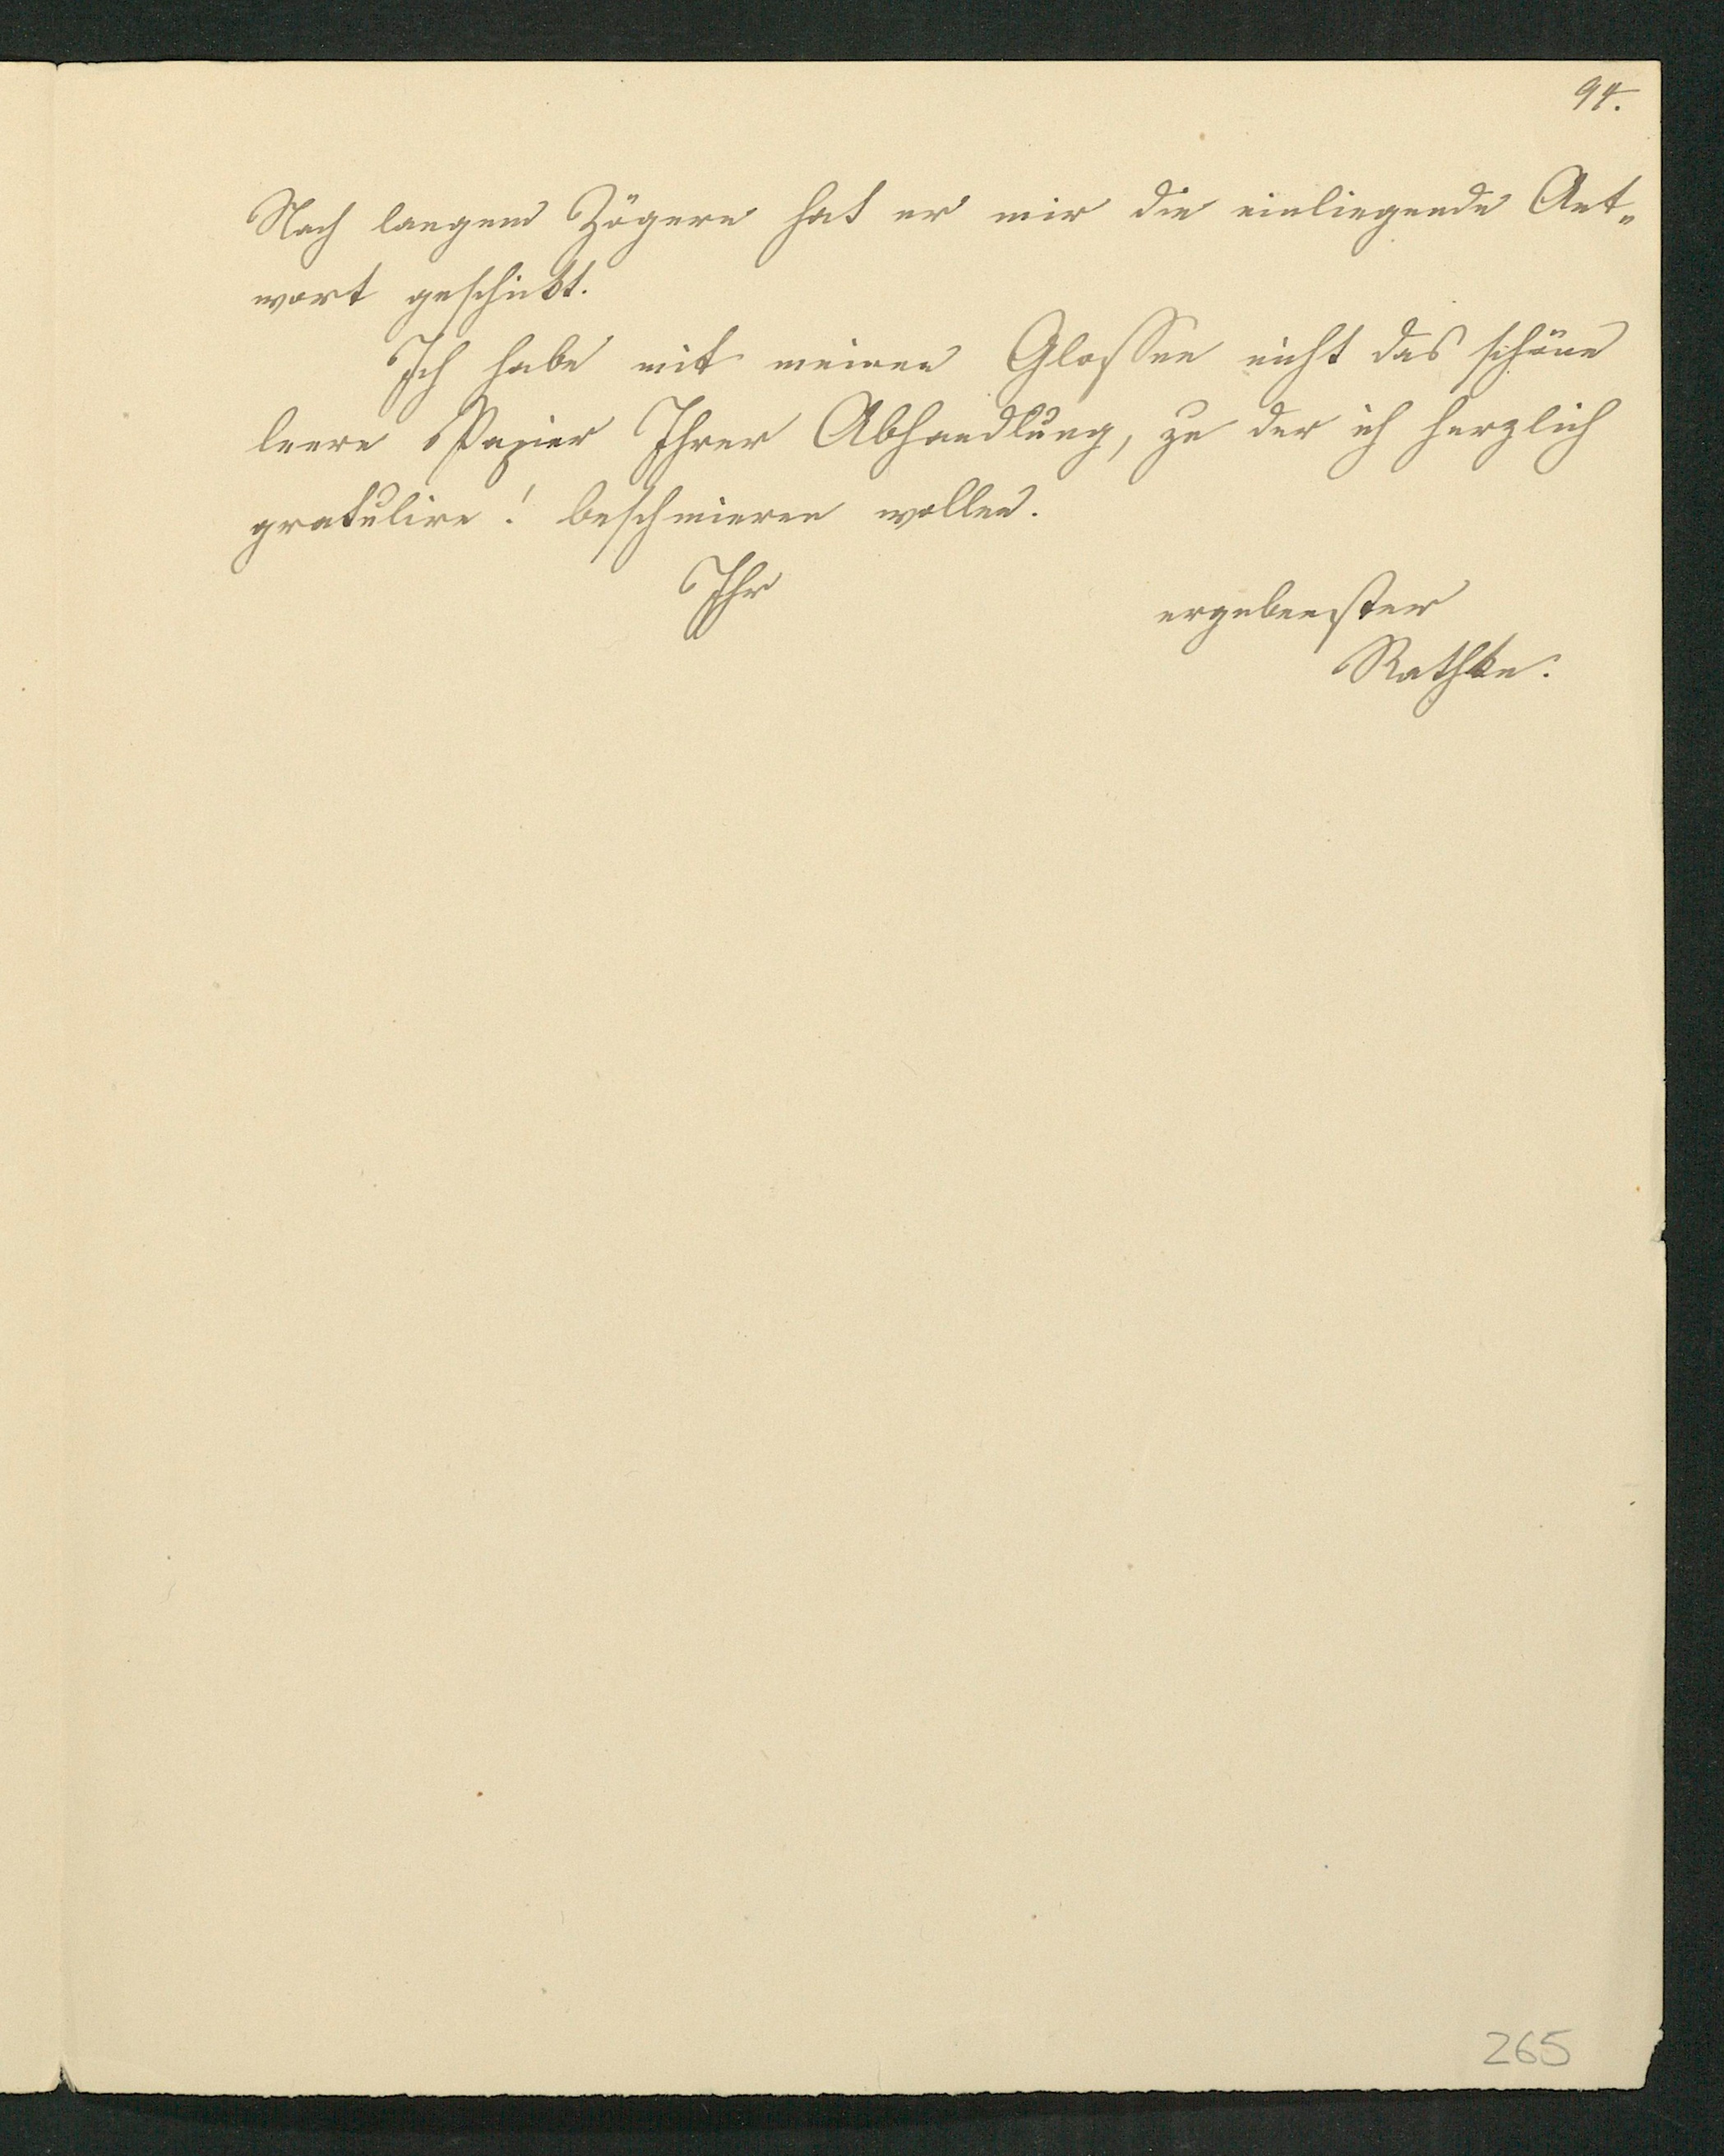 94.
Nach langem Zögern hat er mir die einliegende Ant-
wort geschickt.
Ich habe mit meinen Glossen nicht das schöne
leere Papier Ihrer Abhandlung, zu der ich herzlich
gratulire! beschmieren wollen.
Ihr
ergebenster
Rathke.
265